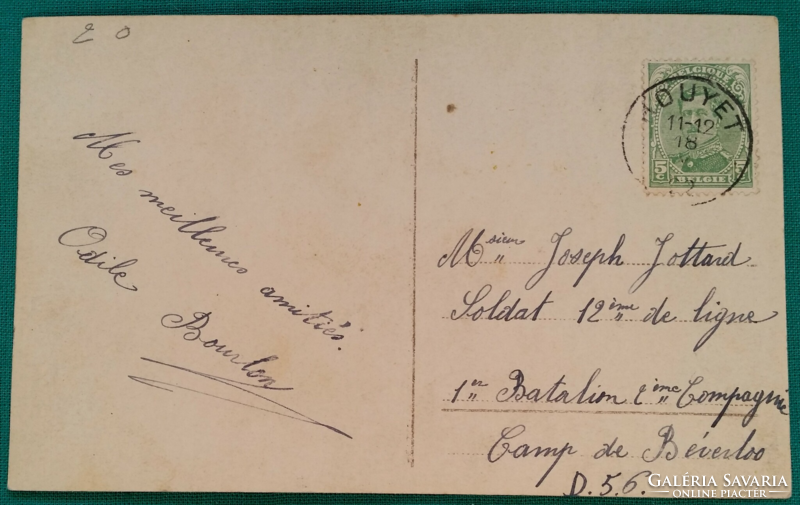 20
Mes meilleures amitiés.
Odile Bourlon
BELGIQUE
5c
BELGIE
HOUYET
11-12
18
Msieur Joseph Jottard
Soldat 12ème de ligne
1er Batalion 2ème Compagnie
Camp de Béverloo
D.5.6.
GALÉRIA SAVARIA
ONLINE PIACTÉR